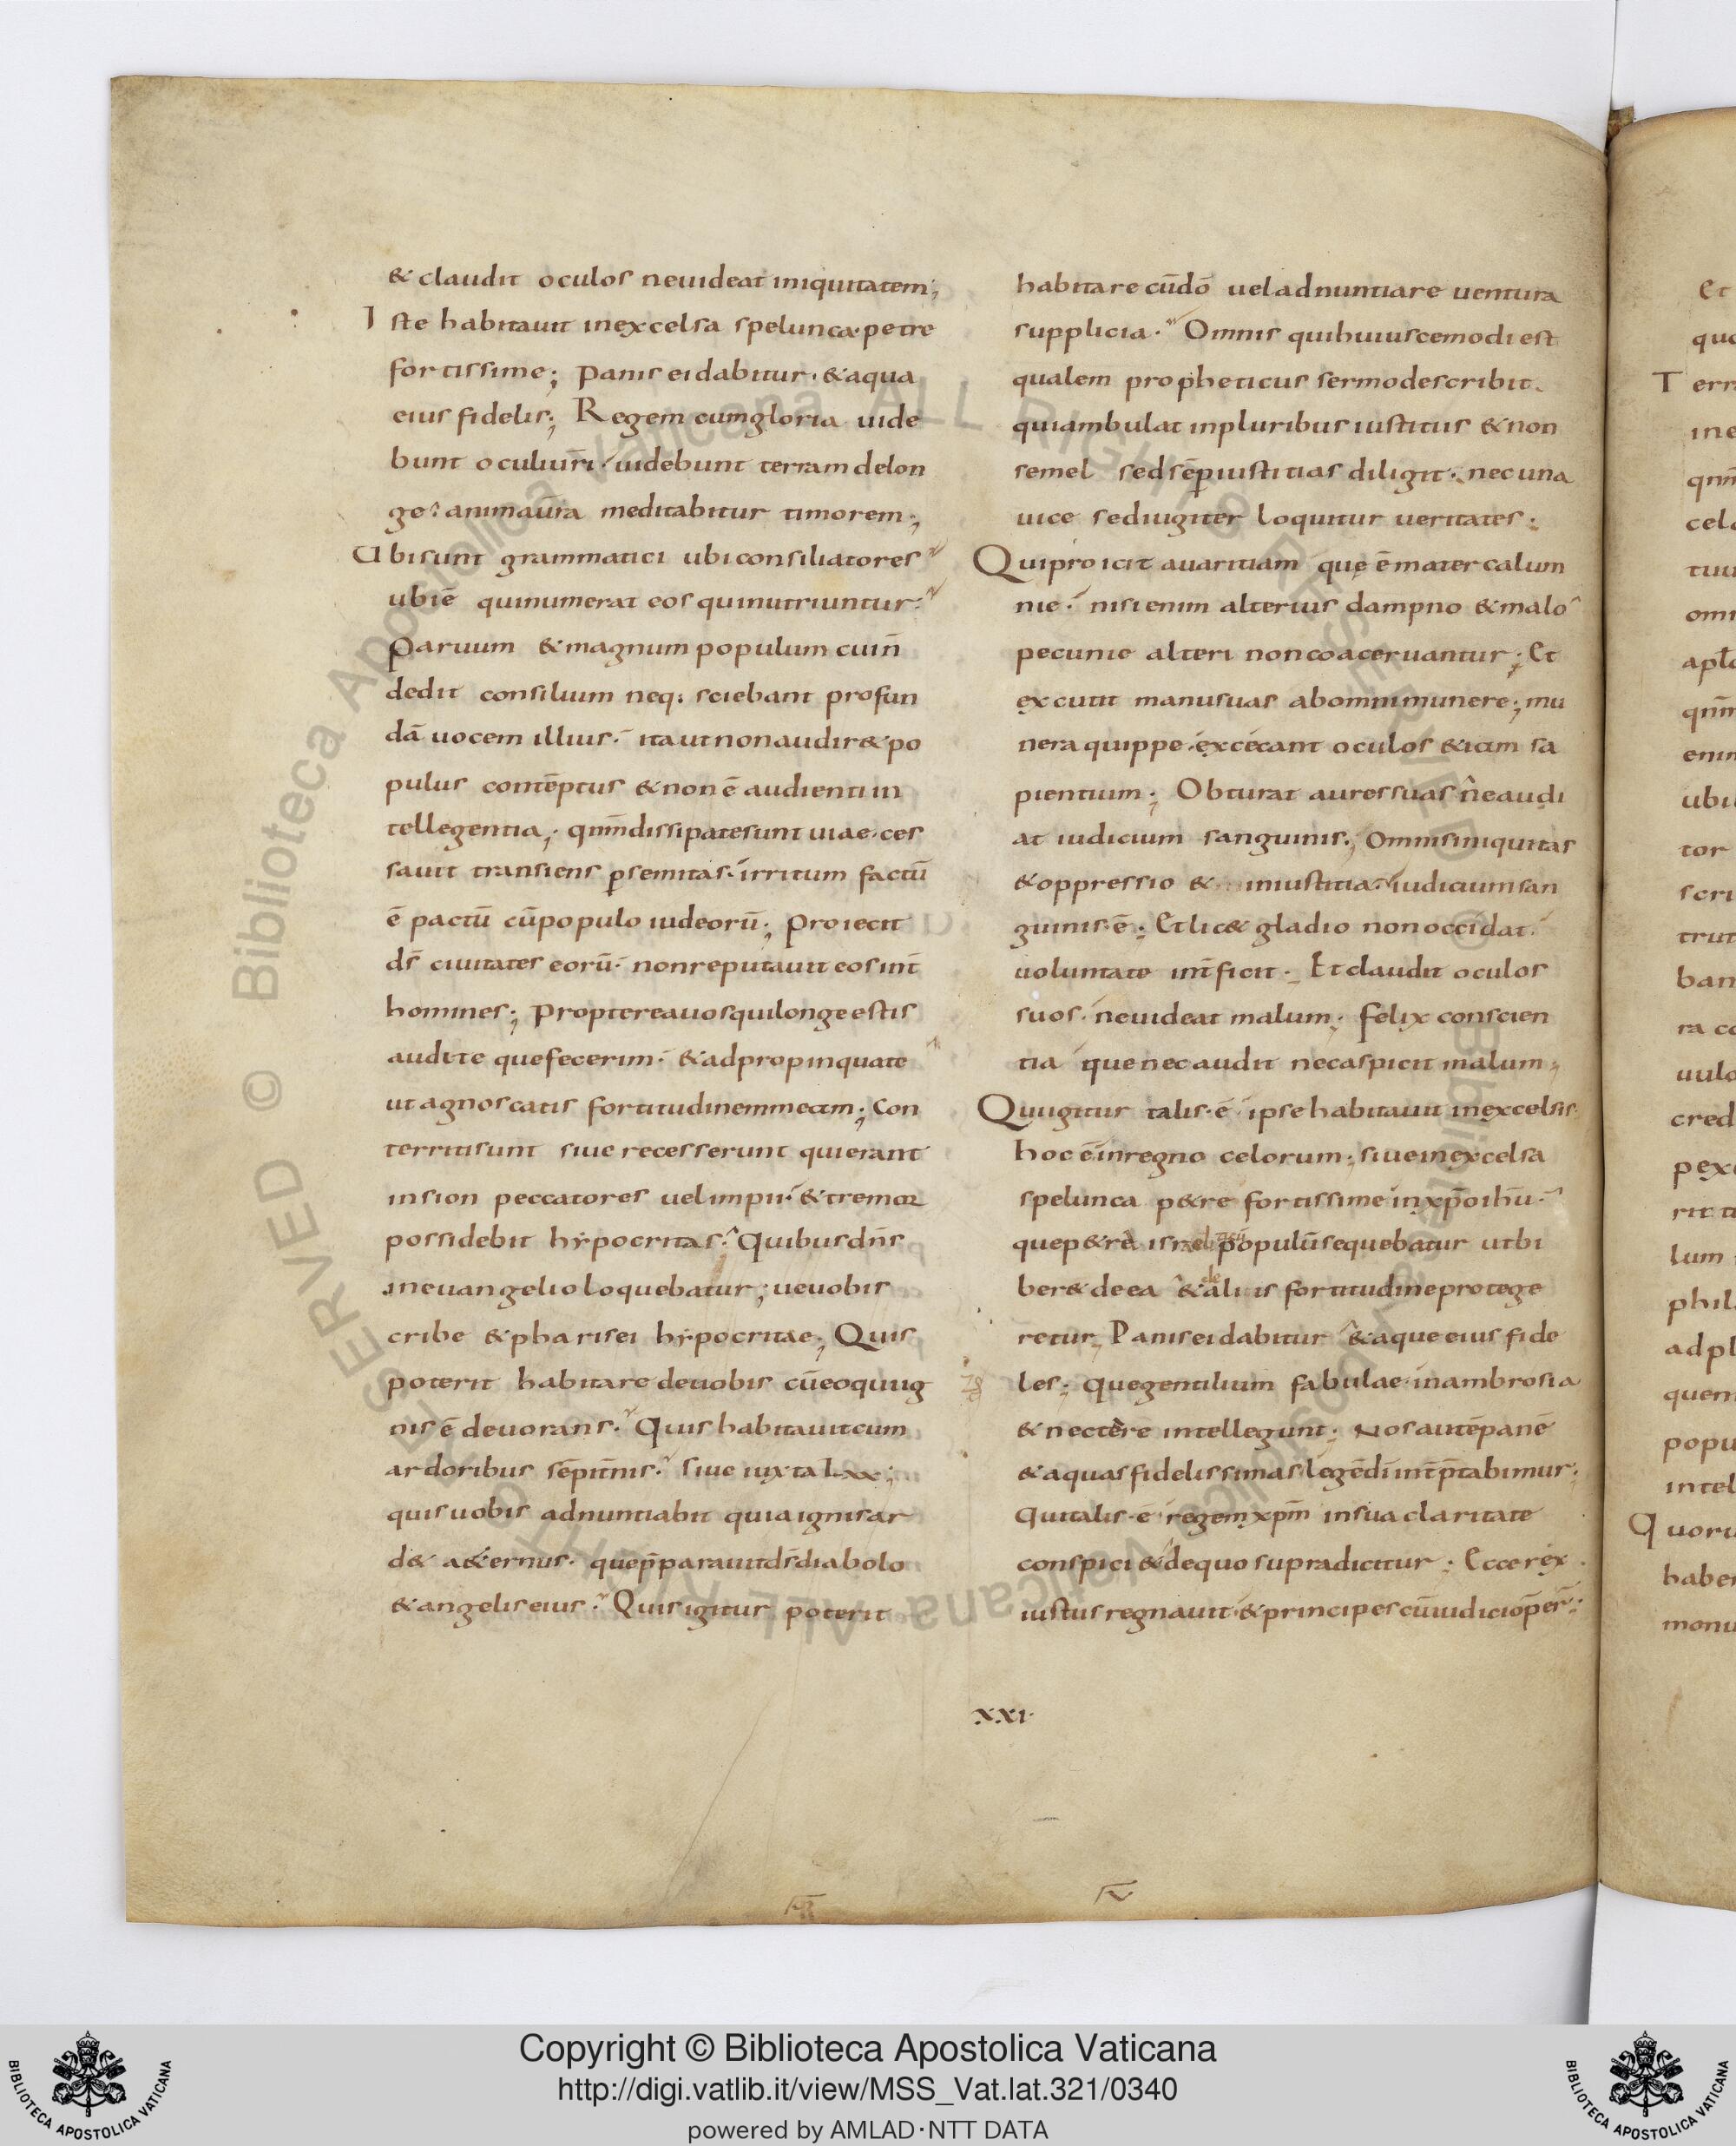 & claudit oculos neuideat iniquitatem;
Iste habitauit inexcelsa spelunca petre
fortissime; Panis eidabitur· &aqua
eius fidelis; Regem cumgloria uide
bunt oculiuṝi· uidebunt terram delon
ge· animaūra meditabitur timorem;
Ubisunt grammatici ubiconsiliatores
ubiē quinumerat eos quinutriuntur·
Paruum &magnum populum cuin̄
dedit consilium neq; sciebant profun
dā uocem illius· itautnonaudir& po
pulus contēptus &nonē audienti in
tellegentia; qm̄dissipatesunt uiae· ces
sauit transiens ꝑsemitas· irritum factū
ē pactū cūpopulo iudeorū; Proiecit
ds̄ ciuitates eorū· nonreputauit eos int̄
homines; Propterea uosquilonge estis
audite quefecerim· &adpropinquate
ut agnoscatis fortitudinemmeam; Con
territisunt siue recesserunt quierant
insion peccatores uel impii· &tremor
possidebit hypocritas· Quibusdn̄s
ineuangelio loquebatur; ueuobis
scribe &pharisei hypocritae; Quis
poterit habitare deuobis cūeoquiig
nis ē deuorans· Quis habitauitcum
ardoribus sēpit̄nis· Siue iuxta Lxx;
quisuobis adnuntiabit quiaignisar
d& a&ernus· quep̄parauitds̄diabolo
&angelis eius· Quis igitur poterit
habitare cūdō ueladnuntiare uentura
supplicia· Omnis quihuiuscemodi est
qualem propheticus sermodescribit·
quiambulat inpluribus iustitiis &non
semel sedsēꝑiustitias diligit· nec una
uice sediugiter loquitur ueritates;
Quiproicit auaritiam quę ē mater calum
nie· nisienim alterius dampno &malo
pecunie alteri noncoaceruantur; Et
excutit manusuas abomnimunere; mu
nera quippe excęcant oculos &iam sa
pientium; Obturat auressuas neaudi
at iudicium sanguinis; Omnisiniquitas
&oppressio & iniustitia· iudiciumsan
guinis· ē; Etlic& gladio non occidat·
uoluntate int̄ficit· Et claudit oculos
suos· neuideat malum; Felix conscien
tia que nec audit necaspicit malum;
Quiigitur talis· ē ipse habitauit inexcelsis·
hoc ē inregno celorum; siue inexcelsa
spelunca p&re fortissime inxp̄oihū·
quep&ra isrl populūsequebatur utbi
ber& deea & aliis fortitudineprotege
retur; Panis eidabitur &aque eius fide
les; Quegentilium fabulae inambrosia
&nectare intellegunt; Nos autēpanē
&aquasfidelissimas legēdi int̄p̄tabimur;
Quitalis· ē regemxpm̄ insua claritate
conspici& dequo supradicitur; Ecce rex
iustus regnauit &principes cūiudicio
xxi·
Et
T err
ine
cela
omn
enim
ubi
tor
scri
trut
ban
uulo
cred
pexe
rit
lum
phil
ad pl
quem
popu
intel
Q uoru
haben
monu
Copyright © Biblioteca Apostolica Vaticana
http://digi.vatlib.it/view/MSS_Vat.lat.321/0340
powered by AMLAD·NTT DATA
BIBLIOTECA APOSTOLICA VATICANA
BIBLIOTECA APOSTOLICA VATICANA